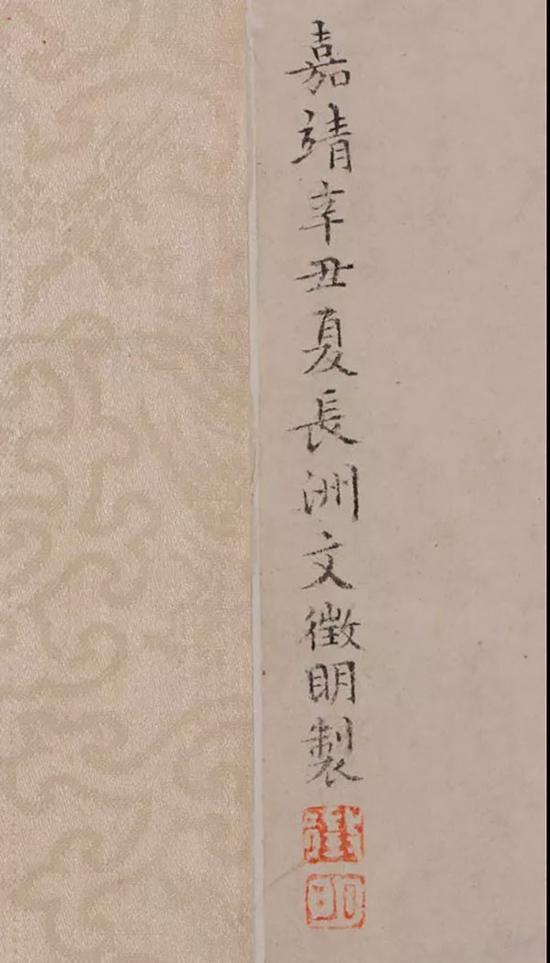 嘉靖辛丑夏長洲文徵明製
徵
明